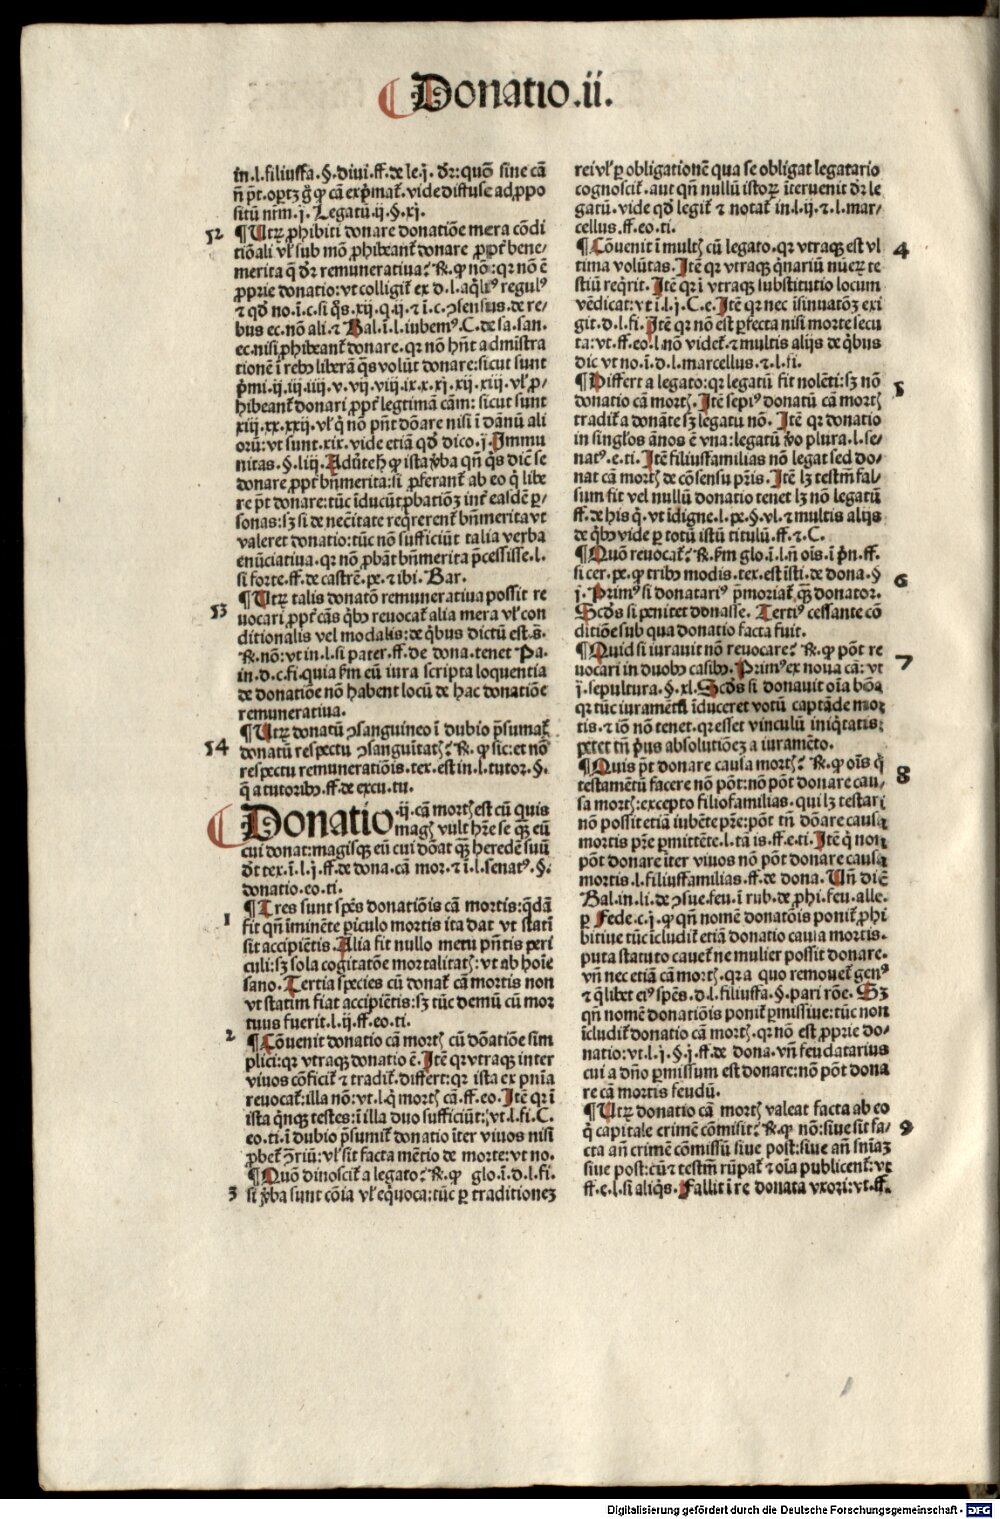 Donatio.ii.
in.l.filiusfa.§.diui.ff.de le.j. dr̄: quō sine cā
n̄ pt̄. oportz gͦ ꝙ cā exp̄mat̄. vide diffuse ad ꝓpo
situ̅ nr̄m.j. Legatu̅.ij.§.xj.
52 ¶Utrꝝ ꝓhibiti donare donatiōe mera cōdi
tiōali vl̓ sub mō ꝓhibeant̄ donare ꝓpt̄ bene-
merita q̄ dr̄ remuneratiua? R̄. ꝙ nō: qr nō ē
ꝓprie donatio: vt colligit̄ ex d.l.aq̇liꝰ regulꝰ
⁊ qd̓ no.ī.c.si q̇s.xij.q.ij.⁊ ī.c.ꝯsensus.de re-
bus ec.nō ali.⁊ Bal.ī.l.iubemꝰ.C.de sa.san.
ec.nisi ꝓhibeant̄ donare.qr nō hn̄t admistra
tionē ī rebꝰ liberā qs volūt donare: sicut sunt
p̄mi.ij.iij.iiij.v.vij.viij.ix.x.xj.xij.xiij.vl̓ ꝓ-
hibeant̄ donari ꝓpt̄ legtimā cām: sicut sunt
xiij.xx.xxij.vl̓ q̇ nō pn̄t dōare nisi ī dānū ali
orū: vt sunt.xix.vide etiā qd̓ dico.j. Immu
nitas.§.liij. Aduteh̓ ꝙ ista v̓ba qn̄ q̇s diē se
donare ꝓpt̄ bn̄merita: si ꝓferant̄ ab eo q̇ libe
re pt̄ donare: tūc īducūt ꝓbatiōꝫ int̄ easdē ꝑ-
sonas: sꝫ si de necītate reqrerent̄ bn̄merita vt
valeret donatio: tūc nō sufficiūt talia verba
enūciatiua.qr nō ꝓbāt bn̄merita p̄cessisse.l.
si forte.ff.de castrē.pe.⁊ ibi. Bar.
53 ¶Utrꝝ talis donatō remuneratiua possit re
uocari ꝓpt̄ cās q̇bꝰ reuocat̄ alia mera vl̓ con
ditionalis vel modalis: de q̇bus dictū est.s̄.
R̄. nō: vt in.l.si pater.ff.de dona.tenet Pa.
in.d.c.fi.quia fm̄ eū iura scripta loquentia
de donatiōe nō habent locū de hac donatiōe
remuneratiua.
54 ¶Utrꝝ donatū ꝯsanguineo ī dubio p̄sumat̄
donatū respectu ꝯsanguītatꝭ? R̄. ꝙ sic: et nō
respectu remuneratiōis.tex.est in.l.tutor.§.
q̄ a tutoribꝰ.ff.de excu.tu.
Donatio.ij.cā mortꝭ est cū quis
magꝭ vult hr̄e se qꝫ eū
cui donat: magisqꝫ eū cui dōat qꝫ heredē suū
vt tex.ī.l.j.ff.de dona.cā mor.⁊ ī.l.senatꝰ.§.
donatio.eo.ti.
1 ¶Tres sunt sp̄es donatiōis cā mortis: q̄dā
fit qn̄ īminēte ꝑiculo mortis ita dat vt statī
sit accipiētis. Alia fit nullo metu pn̄tis peri
culi: sꝫ sola cogitatōe mortalitatꝭ: vt ab hoīe
sano. Tertia species cū donat̄ cā mortis non
vt statim fiat accipiētis: sꝫ tūc demū cū mor
tuus fuerit.l.ij.ff.eo.ti.
2 ¶Cōuenit donatio cā mortꝭ cū dōatiōe sim
plici: qr vtraqꝫ donatio ē. Itē qr vtraqꝫ inter
viuos cōficit̄ ⁊ tradit̄.differt: qr ista ex pn̄ia
reuocat̄: illa nō: vt.l.q̇ mortꝭ cā.ff.eo. Itē qr ī
ista q̇nqꝫ testes: ī illa duo sufficiūt: vt.l.fi.C.
eo.ti.ī dubio p̄sumit̄ donatio īter viuos nisi
ꝓbet̄ ꝯriū: vl̓ sit facta mētio de morte: vt no.
¶Quō dinoscit̄ a legato? R̄. ꝙ glo.ī.d.l.fi.
3 si v̓ba sunt cōia vl̓ eq̇uoca: tūc ꝑ traditionez
rei vl̓ ꝑ obligationē qua se obligat legatario
cognoscit̄.aut qn̄ nullū istoꝝ īteruenit dr̄ le
gatū.vide qd̓ legit̄ ⁊ notat̄ in.l.ij.⁊.l.mar-
cellus.ff.eo.ti.
4 ¶Cōuenit ī multꝭ cū legato.qr vtraqꝫ est vl
tima volūtas. Itē qr vtraqꝫ q̇nariū nueꝝ te
stiū reqrit. Itē qr ī vtraqꝫ substitutio locum
vēdicat: vt ī.l.j.C.e. Itē qr nec īsinuatōꝫ exi
git.d.l.fi. Itē qr nō est ꝑfecta nisi morte secu
ta: vt.ff.eo.l.nō videt̄.⁊ multis alijs de q̇bus
dic vt no.ī.d.l.marcellus.⁊.l.fi.
5 ¶Differt a legato: qr legatū fit nolēti: sꝫ nō
donatio cā mortꝭ. Itē sepiꝰ donatū cā mortꝭ
tradit̄ a donāte sꝫ legatu nō. Itē qr donatio
in singlos ānos ē vna: legatū v̓o plura.l.se-
natꝰ.e.ti. Itē filiusfamilias nō legat sed do-
nat cā mortꝭ de cōsensu pr̄is. Itē lꝫ testm̄ fal-
sum fit vel nullū donatio tenet lꝫ nō legatū
ff.de his q̇.vt īdigne.l.pe.§.vl.⁊ multis alijs
de q̇bꝰ vide ꝑ totū istū titulū.ff.⁊.C.
6 ¶Quō reuocat̄? R̄. fm̄ glo.ī.l.n̄ oīs.ī prin.ff.
si cer.pe.ꝙ tribꝰ modis.tex.est īsti.de dona.§
j. Primꝰ si donatariꝰ p̄moriat̄ qꝫ donator.
Scd̓s si penitet donasse. Tertiꝰ cessante cō
ditiōe sub qua donatio facta fuit.
7 ¶Quid si iurauit nō reuocare? R̄. ꝙ pōt re
uocari in duobꝰ casibꝰ. Primꝰ ex noua cā: vt
j.sepultura.§.xl. Scd̓s si donauit oīa bōa
qr tūc iuramētū īduceret votū captāde mor
tis.⁊ iō nō tenet.qr esset vinculū iniq̇tatis:
petet tn̄ pͥus absolutiōeꝫ a iuramēto.
8 ¶Quis pt̄ donare causa mortꝭ? R̄. ꝙ oīs q̇
testamētū facere nō pōt: nō pōt donare cau-
sa mortꝭ: excepto filiofamilias.qui lꝫ testari
nō possit etiā iubēte pr̄e: pōt tn̄ dōare causa
mortis pr̄e ꝑmittēte.l.tā is.ff.e.ti. Itē q̇ non
pōt donare īter viuos nō pōt donare causa
mortis.l.filiusfamilias.ff.de dona. Un̄ diē
Bal.in.li.de ꝯsue.feu.ī rub.de ꝓhi.feu.alle.
ꝑ Fede.c.j.ꝙ qn̄ nomē donatōis ponit̄ ꝓhi
bitiue tūc īcludit̄ etiā donatio causa mortis.
puta statuto cauet̄ ne mulier possit donare.
vn̄ nec etiā cā mortꝭ.qr a quo remouet̄ genꝰ
⁊ q̇libet eiꝰ sp̄es.d.l.filiusfa.§.pari rōe. Sꝫ
qn̄ nomē donatiōis ponit̄ ꝑmissiue: tūc non
īcludit̄ donatio cā mortꝭ.qr nō est ꝓprie do-
natio: vt.l.j.§.j.ff.de dona.vn̄ feudatarius
cui a dn̄o ꝑmissum est donare: nō pōt dona
re cā mortis feudū.
9 ¶Utrꝝ donatio cā mortꝭ valeat facta ab eo
q̇ capitale crimē cōmisit? R̄. ꝙ nō: siue sit fa-
cta an̄ crimē cōmissū siue post: siue an̄ sn̄iaꝫ
siue post: cū ⁊ testm̄ rūpat̄ ⁊ oīa publicent̄: vt
ff.e.l.si aliq̇s. Fallit ī re donata vxori: vt.ff.
Digitalisierung gefördert durch die Deutsche Forschungsgemeinschaft - DFG